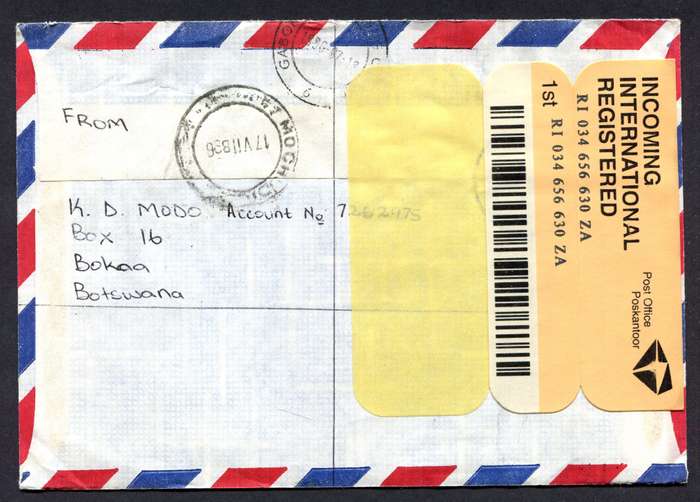 GABO
FROM
MOCH
17 VII 1996
K. D. MODO Account No 7262475
Box 16
Bokaa
Botswana
1st RI 034 656 630 ZA
RI 034 656 630 ZA
INCOMING
INTERNATIONAL
REGISTERED
Post Office
Poskantoor